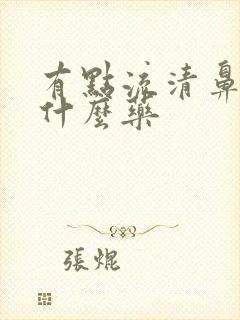 有點流清鼻
什麼藥
張焜